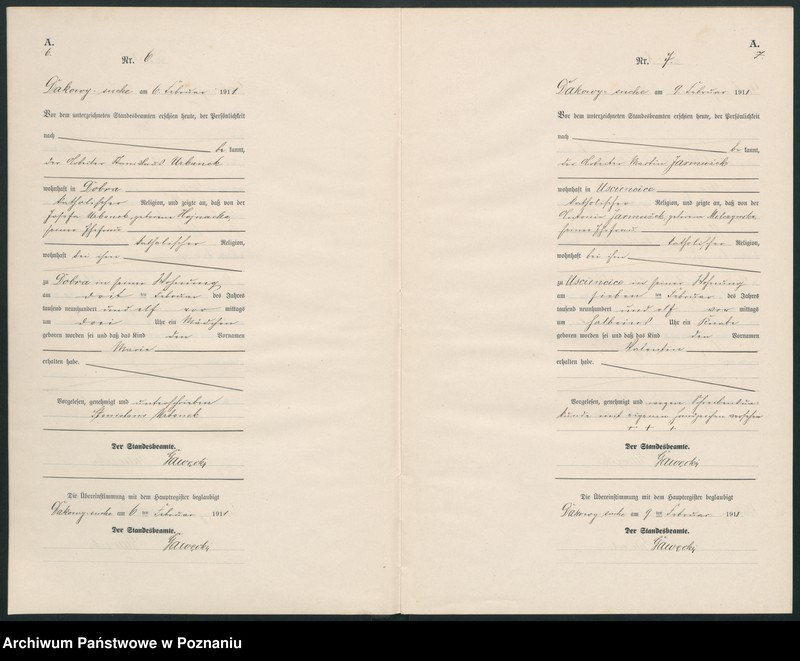 A.
6.
Nr. 6
Dakowy-suche am 6. Februar 1911
Vor dem unterzeichneten Standesbeamten erschien heute, der Persönlichkeit
nach
be kannt,
der Arbeiter Stanislaus Urbanek
wohnhaft in Dobra
katholischer Religion, und zeigte an, daß von der
Josefa Urbanek, geborene
seiner Ehefrau
katholischer Religion,
wohnhaft bei ihm
zu Dobra in seiner Wohnung
am drei ten Februar des Jahres
tausend neunhundert und elf vor mittags
um drei Uhr ein Mädchen
geboren worden sei und daß das Kind den Vornamen
Marie
erhalten habe.
Vorgelesen, genehmigt und unterschrieben
Stanislaus Urbanek
Der Standesbeamte.
Gawęcki
Die Übereinstimmung mit dem Hauptregister beglaubigt
Dakowy-suche am 6 ten Februar 1911
Der Standesbeamte.
Gawęcki
A.
7.
Nr. 7.
Dakowy-suche am 9. Februar 1911
Vor dem unterzeichneten Standesbeamten erschien heute, der Persönlichkeit
nach
be kannt,
der Arbeiter Martin
wohnhaft in Usciencice
katholischer Religion, und zeigte an, daß von der
geborene
seiner Ehefrau
katholischer Religion,
wohnhaft bei ihm
zu Usciencice in seiner Wohnung
am sieben ten Februar des Jahres
tausend neunhundert und elf vor mittags
um halbeins Uhr ein Knabe
geboren worden sei und daß das Kind den Vornamen
Valentin
erhalten habe.
Vorgelesen, genehmigt und wegen Schreibenun
kunde mit eigenen Handzeichen versehen
+ + +
Der Standesbeamte.
Gawęcki
Die Übereinstimmung mit dem Hauptregister beglaubigt
Dakowy-suche am 9 ten Februar 1911
Der Standesbeamte.
Gawęcki
Archiwum Państwowe w Poznaniu